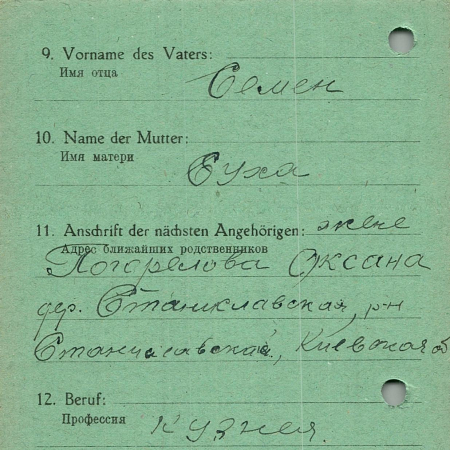 9. Vorname des Vaters:
Имя отца
Семен
10. Name der Mutter:
Имя матери
Еуха
11. Anschrift der nächsten Angehörigen: жене
Адрес ближайших родственников
Погорелова Оксана
дер. Станиславская, р-н
Киевская об
12. Beruf:
Профессия